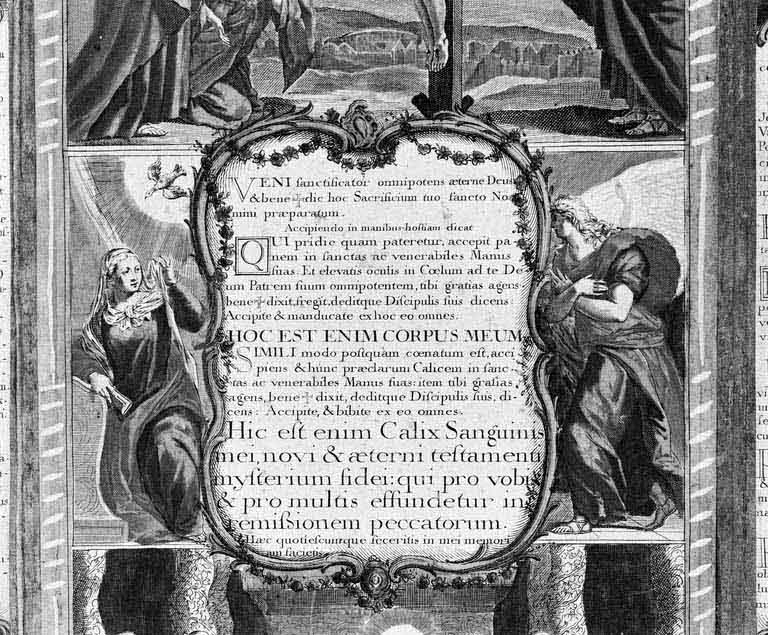 VENI sanctificator omnipotens æterne Deus
& bene ✠ dic hoc Sacrificium tuo sancto No-
mini præparatum.
Accipiendo in manibus hostiam dicat
QUI pridie quam pateretur, accepit pa-
nem in sanctas ac venerabiles Manus
suas. Et elevatis oculis in Cœlum ad te De-
um Patrem suum omnipotentem, tibi gratias agens
bene ✠ dixit, fregit, deditque Discipulis suis dicens
Accipite & manducate ex hoc eo omnes.
HOC EST ENIM CORPUS MEUM
SIMILI modo postquam cœnatum est, acci
piens & hunc præclarum Calicem in sanc-
tas ac venerabiles Manus suas: item tibi gratias
agens, bene ✠ dixit, deditque Discipulis suis, di-
cens: Accipite, & bibite ex eo omnes.
Hic est enim Calix Sanguinis
mei, novi & æterni testamenti
mysterium fidei: qui pro vobis
& pro multis effundetur in
remißionem peccatorum.
Hæc quotiescunque feceritis in mei memori
am facietis